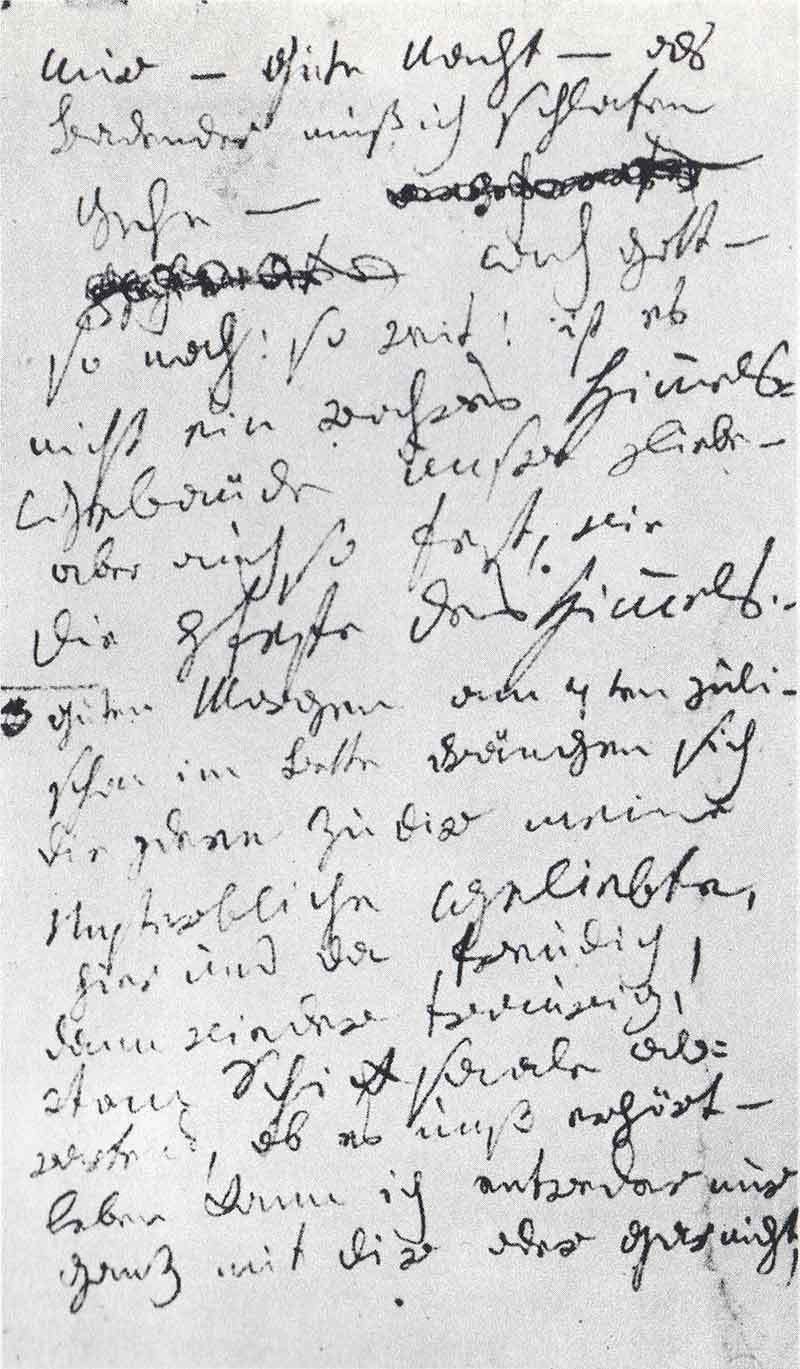 mir — gute Nacht — als
Badender muß ich schlafen
gehn —
ach gott —
so nah! so weit! ist es
nicht ein wahres Himels=
Gebaüde unsre Liebe —
aber auch so fest, wie
die Veste des Himels. —
guten Morgen am 7ten juli —
schon im Bette drängen sich
die Ideen zu dir meine
Unsterbliche Geliebte,
hier und da freudig,
dann wieder traurig,
vom Schicksaale ab=
wartend, ob es unß erhört —
leben kann ich entweder nur
ganz mit dir oder gar nicht,